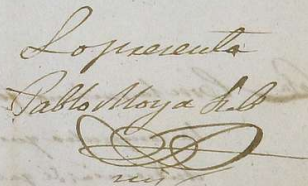 Lo presenta
Pablo Moya